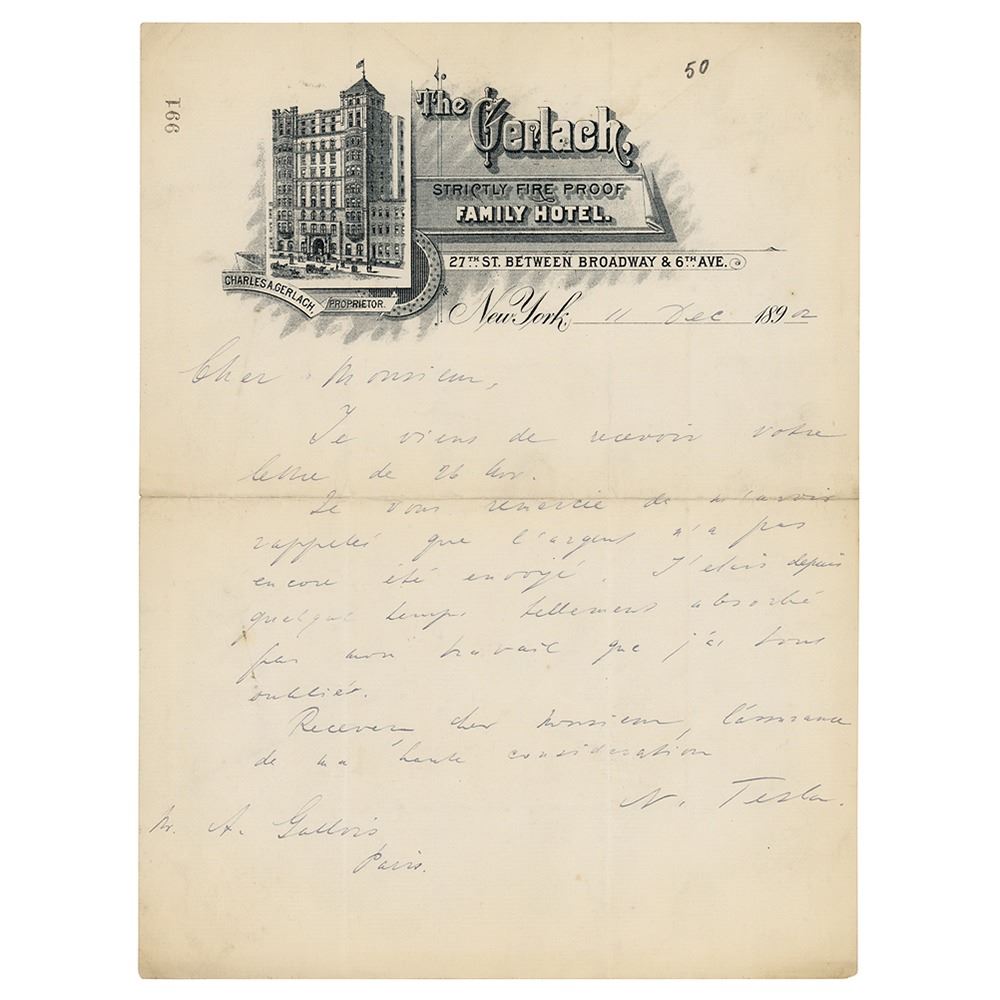 991
50
The Gerlach,
STRICTLY FIRE PROOF
FAMILY HOTEL.
27TH ST. BETWEEN BROADWAY & 6TH AVE.
CHARLES A. GERLACH,
PROPRIETOR.
New York, 11 Dec 1892
Cher Monsieur,
Je viens de recevoir votre
lettre de 26 Nov.
Je vous remercie de m'avoir
rappelés que l'argent n'a pas
encore été envoyé. J'etais depuis
quelque temps tellement absorbé
pas mon travail que j'ai tout
oublier.
Recevez cher Monsieur, l'assurance
de ma haute consideration
N. Tesla.
Mr. A. Gallois
Paris.